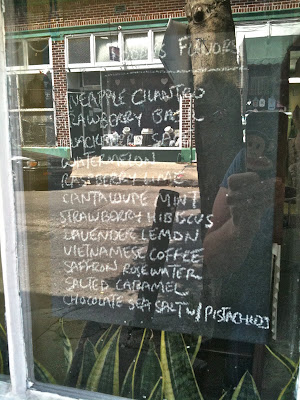 FLAVORS
PINEAPPLE CILANTRO
STRAWBERRY BASIL
WATERMELON
RASPBERRY LIME
CANTALOUPE MINT
STRAWBERRY HIBISCUS
LAVENDER LEMON
VIETNAMESE COFFEE
SAFFRON ROSEWATER
SALTED CARAMEL
CHOCOLATE SEA SALT W/ PISTACHIOS